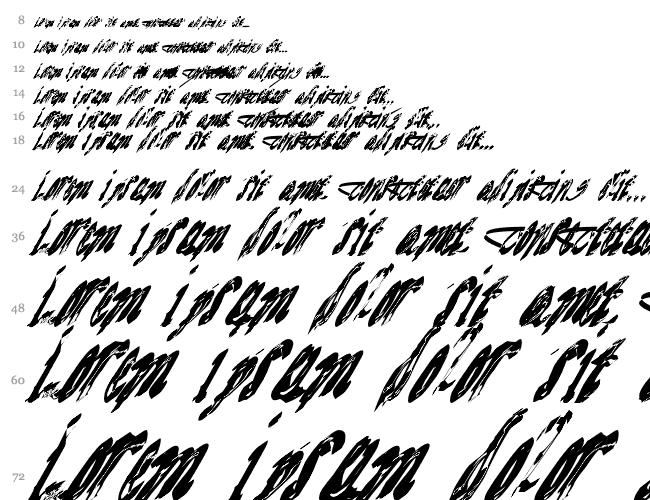 8 Lorem ipsam dolor sit amet consectetaur adipiscing elit...
10 Lorem ipsam dolor sit amet consectetaur adipiscing elit...
12 Lorem ipsam dolor sit amet consectetaur adipiscing elit...
14 Lorem ipsam dolor sit amet consectetaur adipiscing elit...
16 Lorem ipsam dolor sit amet consectetaur adipiscing elit...
18 Lorem ipsam dolor sit amet consectetaur adipiscing elit...
24 Lorem ipsam dolor sit amet consectetaur adipiscing elit...
36 Lorem ipsam dolor sit amet consectetau
48 Lorem ipsam dolor sit amet,
60 Lorem ipsam dolor sit
72 Lorem ipsam dolor